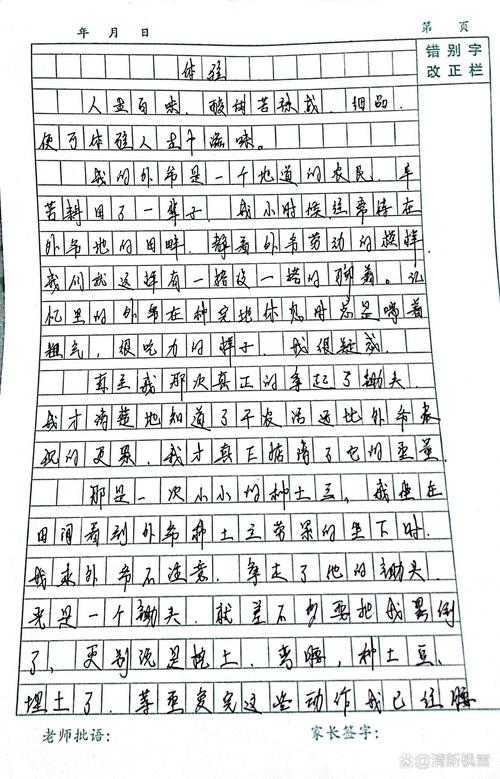 年 月 日 第 页
错别字
改正栏
体验
人生百味,酸甜苦辣咸,细品,
便可体验人生个滋味。
我的外爷是一个地道的农民,辛
苦耕田了一辈子,我小时候经常待在
外爷地的田畔,静看外爷劳动的模样,
我们就这样有一搭没一搭的聊着。记
忆里的外爷在种完地休息时总是喘着
粗气,很吃力的样子,我很疑惑,
直至我那次真正的拿起了锄头,
我才清楚地知道了干农活远比外爷表
现的更累,我才真正掂清了它的重量
那是一次小小的种土豆,我坐在
田间看到外爷种土豆劳累的坐下时,
我乘外爷不注意,拿走了他的锄头,
光是一个锄头,就差不多要把我累倒
了,更别说是挖土,弯腰,种土豆,
埋土了,等重复完这些动作我已经腰
老师批语: 家长签字:
@清新枫雪